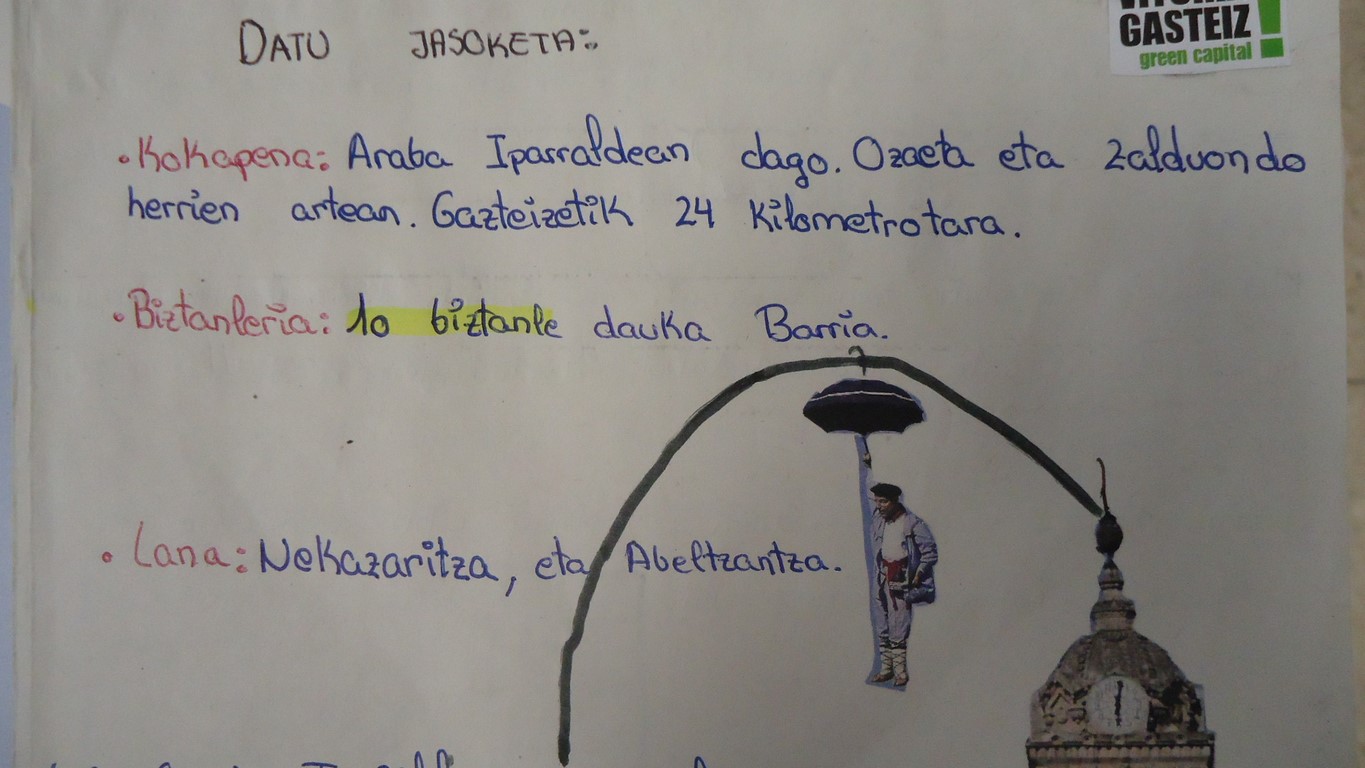 DATU JASOKETA:
GASTEIZ !
green capital
• Kokapena: Araba Iparraldean dago. Ozaeta eta Zalduondo
herrien artean. Gazteizetik 24 kilometrotara.
• Biztanleria: 10 biztanle dauka Barria.
• Lana: Nekazaritza, eta Abeltzantza.